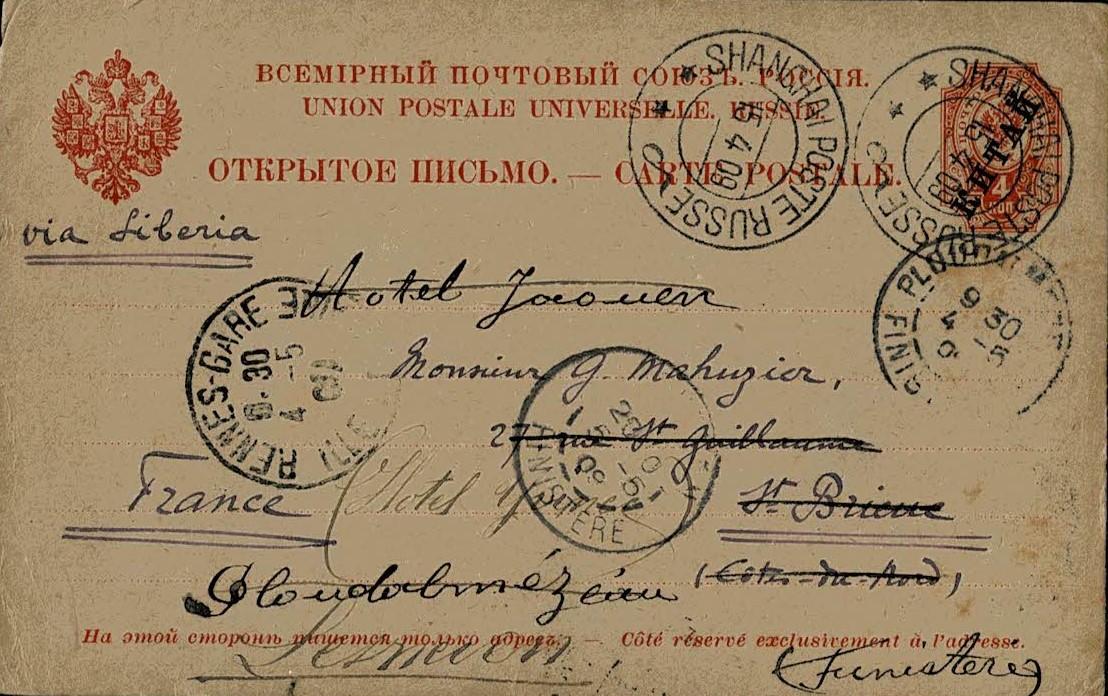 ВСЕМІРНЫЙ ПОЧТОВЫЙ СОЮЗЪ. РОССІЯ.
UNION POSTALE UNIVERSELLE. RUSSIE.
ОТКРЫТОЕ ПИСЬМО. — CARTE POSTALE.
SHANGHAI POSTE RUSSE
15 4 09
SHANGHAI POSTE RUSSE
15 4 09
КИТАЙ
4
КОП
via Siberia
PLOUDALMEZEAU
FINIS
9 30
4 -5
Hotel Jaouen
RENNES-GARE
ILLE
4 -5
09
Monsieur G. Mahuzier,
27 rue St Guillaume
FINISTERE
France
Hotel
St Brieuc
(Côtes-du-Nord)
Ploudalmézeau
На этой сторонѣ пишется только адресъ. — Côté réservé exclusivement à l'adresse.
(Finistère)